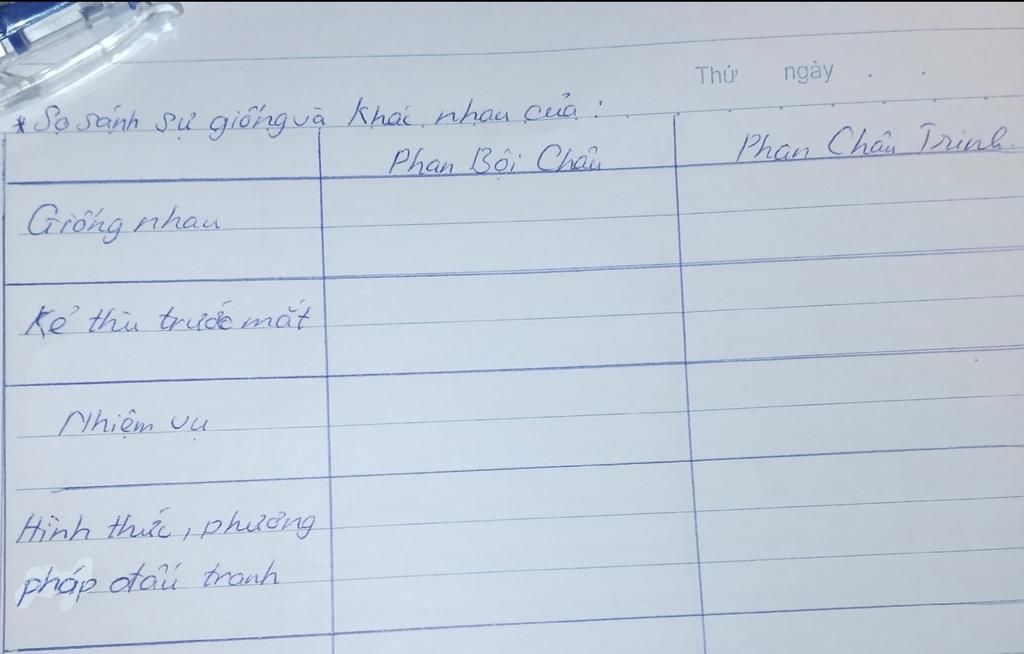 Thứ ngày . .
* So sánh sự giống và khác nhau của :
Phan Bội Châu Phan Châu Trinh.
Giống nhau
Kẻ thù trước mắt
Nhiệm vụ
Hình thức, phương
pháp đấu tranh